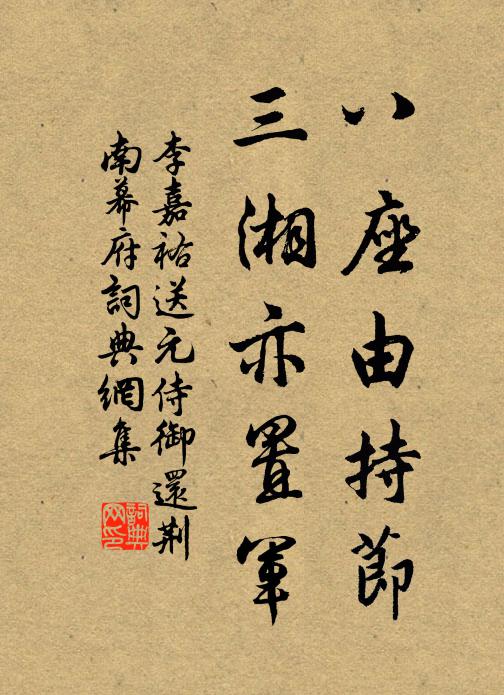 八座由持節
三湘亦置軍
李嘉祐送元侍御還荆
南幕府詞典網集
詞典
网印